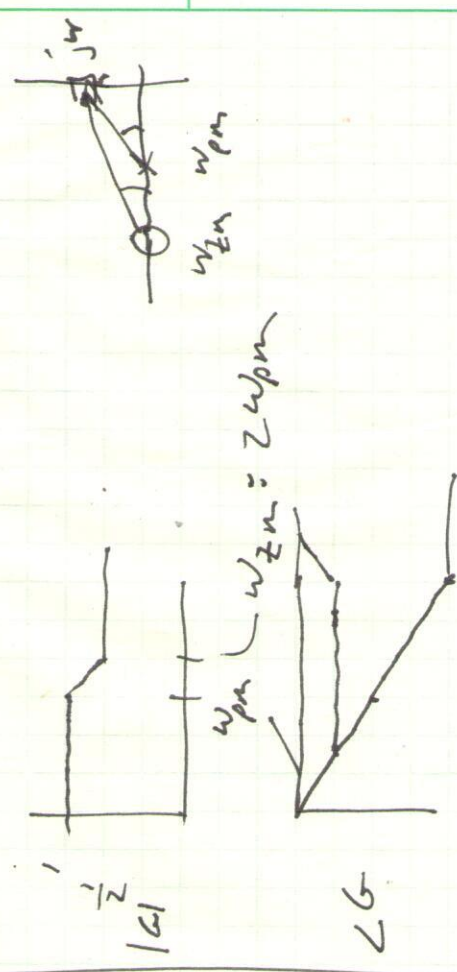 jω
ω_zm ω_pm
1
1/2
|G|
ω_pm ω_zm = 2ω_pm
∠G